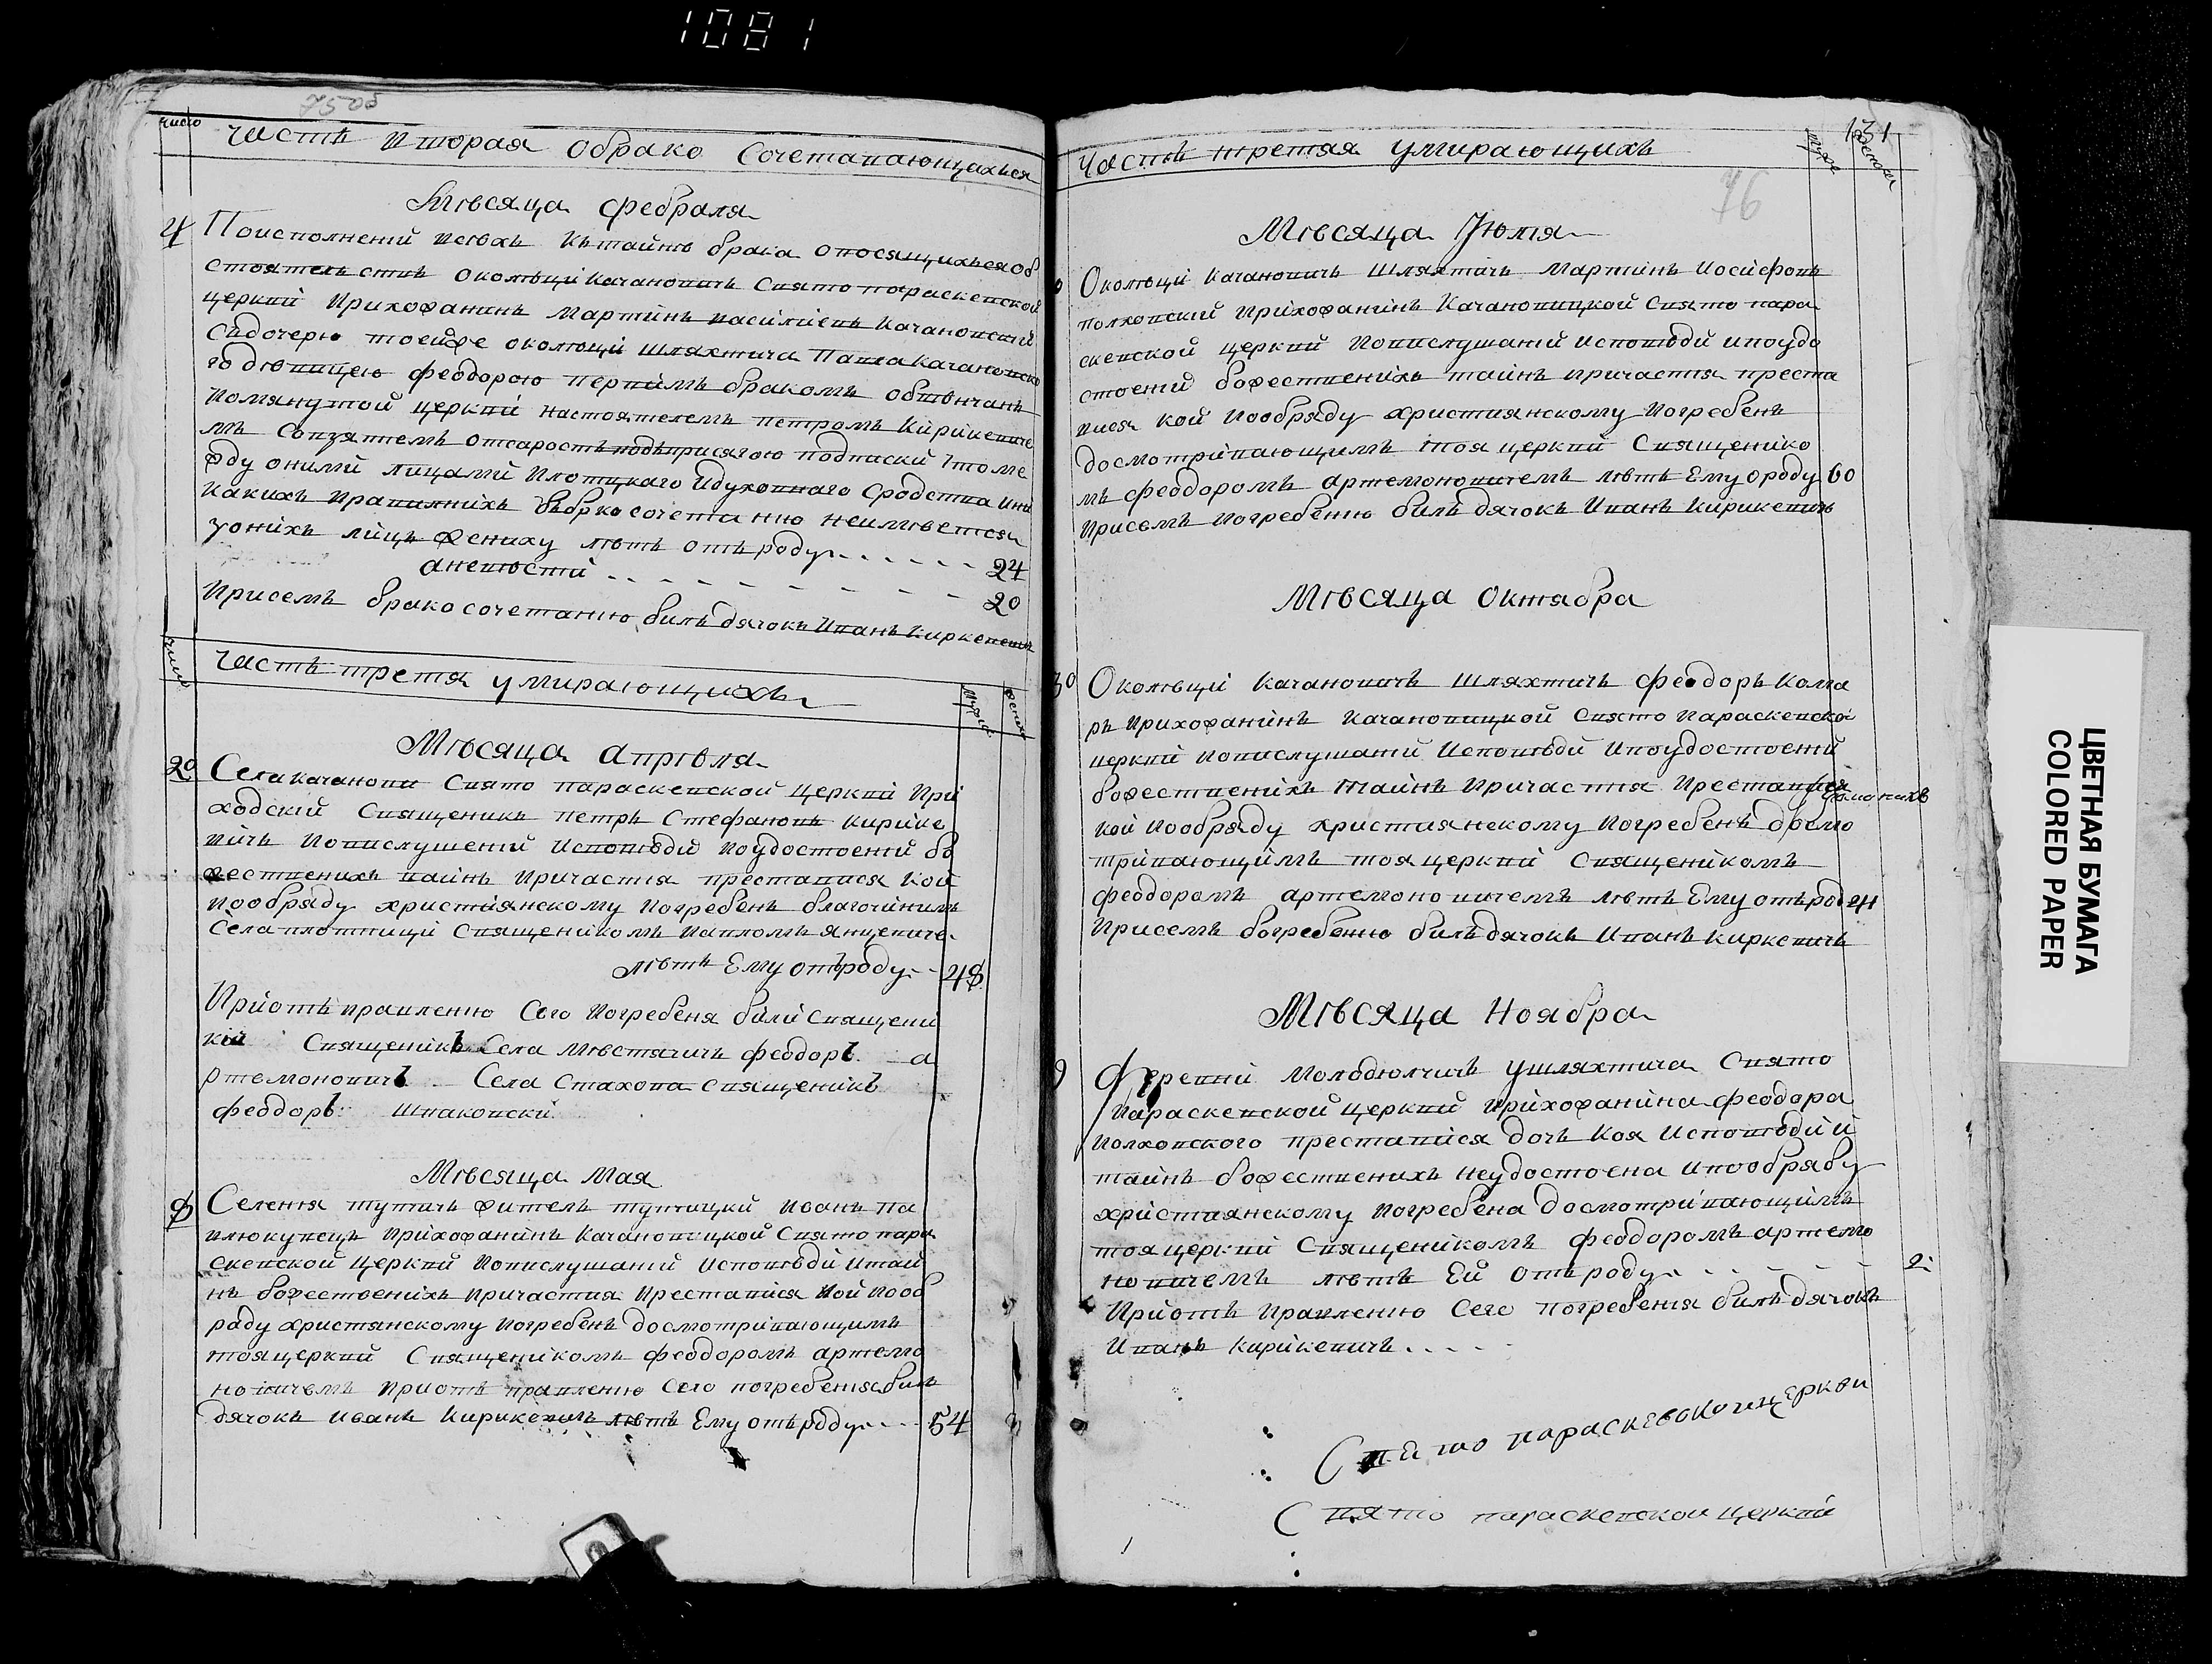 1081
число
Часть Вторая обрако Сочетавающихься
Мѣсяца февраля
4 Поисполнений всѣхъ къ тайнѣ брака относящихься об
стоятельствъ околици Качановичъ Свято параскевской
церкви Прихожанинъ Мартинъ Василиевъ Качановский
съдочерю тоейже околици шляхтича Павла Качановско
го дѣвицею феодорою первимъ бракомъ обвѣнчанъ
помянутой церкви настоятелемъ петромъ Кирикевиче
мъ Совзятиемъ отсарость подъприсягою подписки что ме
жду оними лицами плотцкаго идуховнаго сродства ини
какихъ правилнихъ бѣбрко сочетанию неимѣется
уонихъ лицъ жениху лѣтъ отъ роду 24
аневѣсти 20
Присемъ бракосочетанию билъ дячокъ Иванъ Киркевичъ
число
Часть третя умирающихъ
Мѣсяца апрѣля
20 Села качанови Свято параскевской церкви При
ходский Священикъ петръ Стефановъ Кирике
вичъ Повислушений исповѣди поудостоений бо
жественихъ таинъ Причастия преставися кой
пообряду християнскому погребенъ благочинимъ
Села плотници Священикомъ павломъ янцевиче
лѣтъ Ему отъроду 48
Приотъправлению Сего погребеня били священи
ки Священикъ Села Мѣстятичъ феодоръ а
ртемоновичъ Села Стахова священикъ
феодоръ Шпаковски
Мѣсяца Мая
Селения тутичъ житель тутицкий Иванъ па
влюкупецъ Прихожанинъ Качановицкой Свято пара
скевской церкви Повислушаний исповѣди итаи
нъ божественихъ причастия Преставися кой пооб
раду християнскому погребенъ досмотривающимъ
тояцеркви Священикомъ феодоромъ артемо
новичемъ приотъ правлению Сего погребения билъ
дячокъ Иванъ Кирикевичъ лѣтъ Ему отъроду 54
131
Часть третяя умирающихъ
76
Мѣсяца Июля
Околици качановичъ шляхтичъ Мартинъ Иосифовъ
полховский Прихожанинъ Качановицкой Свято пара
скевской церкви Повислушаний исповѣди ипоудо
стоений божественихъ таинъ причастия преста
вися кой пообряду християнскому погребенъ
досмотривающимъ тоя церкви Священико
мъ феодоромъ артемоновичемъ лѣтъ Ему ороду 60
Присемъ погребению билъ дячокъ Иванъ Кирикевичъ
Мѣсяца Октября
30 Околици Качановичъ шляхтичъ феодоръ Кома
ръ Прихожанинъ Качановицкой Свято Параскевско
церкви повислушаний исповѣди ипоудостоений
божественихъ таинъ Причастия Преставися
кой пообряду християнскому погребенъ досмо
тривающимъ тоя церкви Священикомъ
феодоромъ артемоновичемъ лѣтъ Ему отърод 24
Присемъ погребению билъ дячокъ Иванъ Киркевичъ
Мѣсяца Ноября
9 Деревни Молодѣлчичъ ушляхтича Свято
Параскевской церкви прихожанина феодора
Полховского преставися дочь коя исповѣди и
таинъ божественихъ неудостоена ипообряду
християнскому погребена досмотривающимъ
тоя церкви Священикомъ феодоромъ артемо
новичемъ лѣтъ Ей отъроду 2
Приотъ правлению Сего погребения билъ дячокъ
Иванъ Кирикевичъ
Свято параскевской церкви
Свято параскевской церкви
ЦВЕТНАЯ БУМАГА
COLORED PAPER